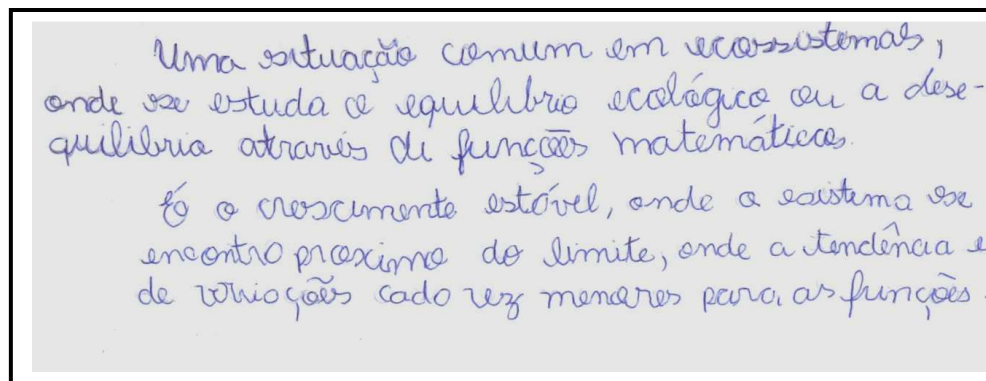 Uma situação comum em ecossistemas,
onde se estuda o equilibrio ecológico ou o dese-
quilibrio através de funções matemáticas.
É o crescimento estável, onde o sistema se
encontra proximo do limite, onde a tendência e
de variações cada vez menores para as funções.